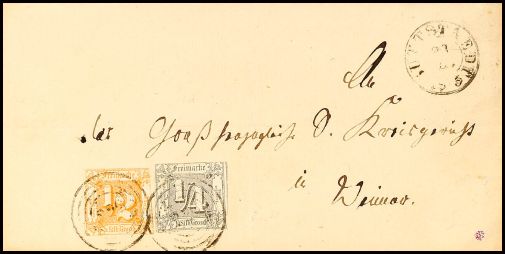 BUTTSTAEDT
An
das Großherzogliche S. Kreisgericht
in
Weimar.
Freimarke
1/2
Silb. Grosch.
Freimarke
1/4
Silb. Grosch.